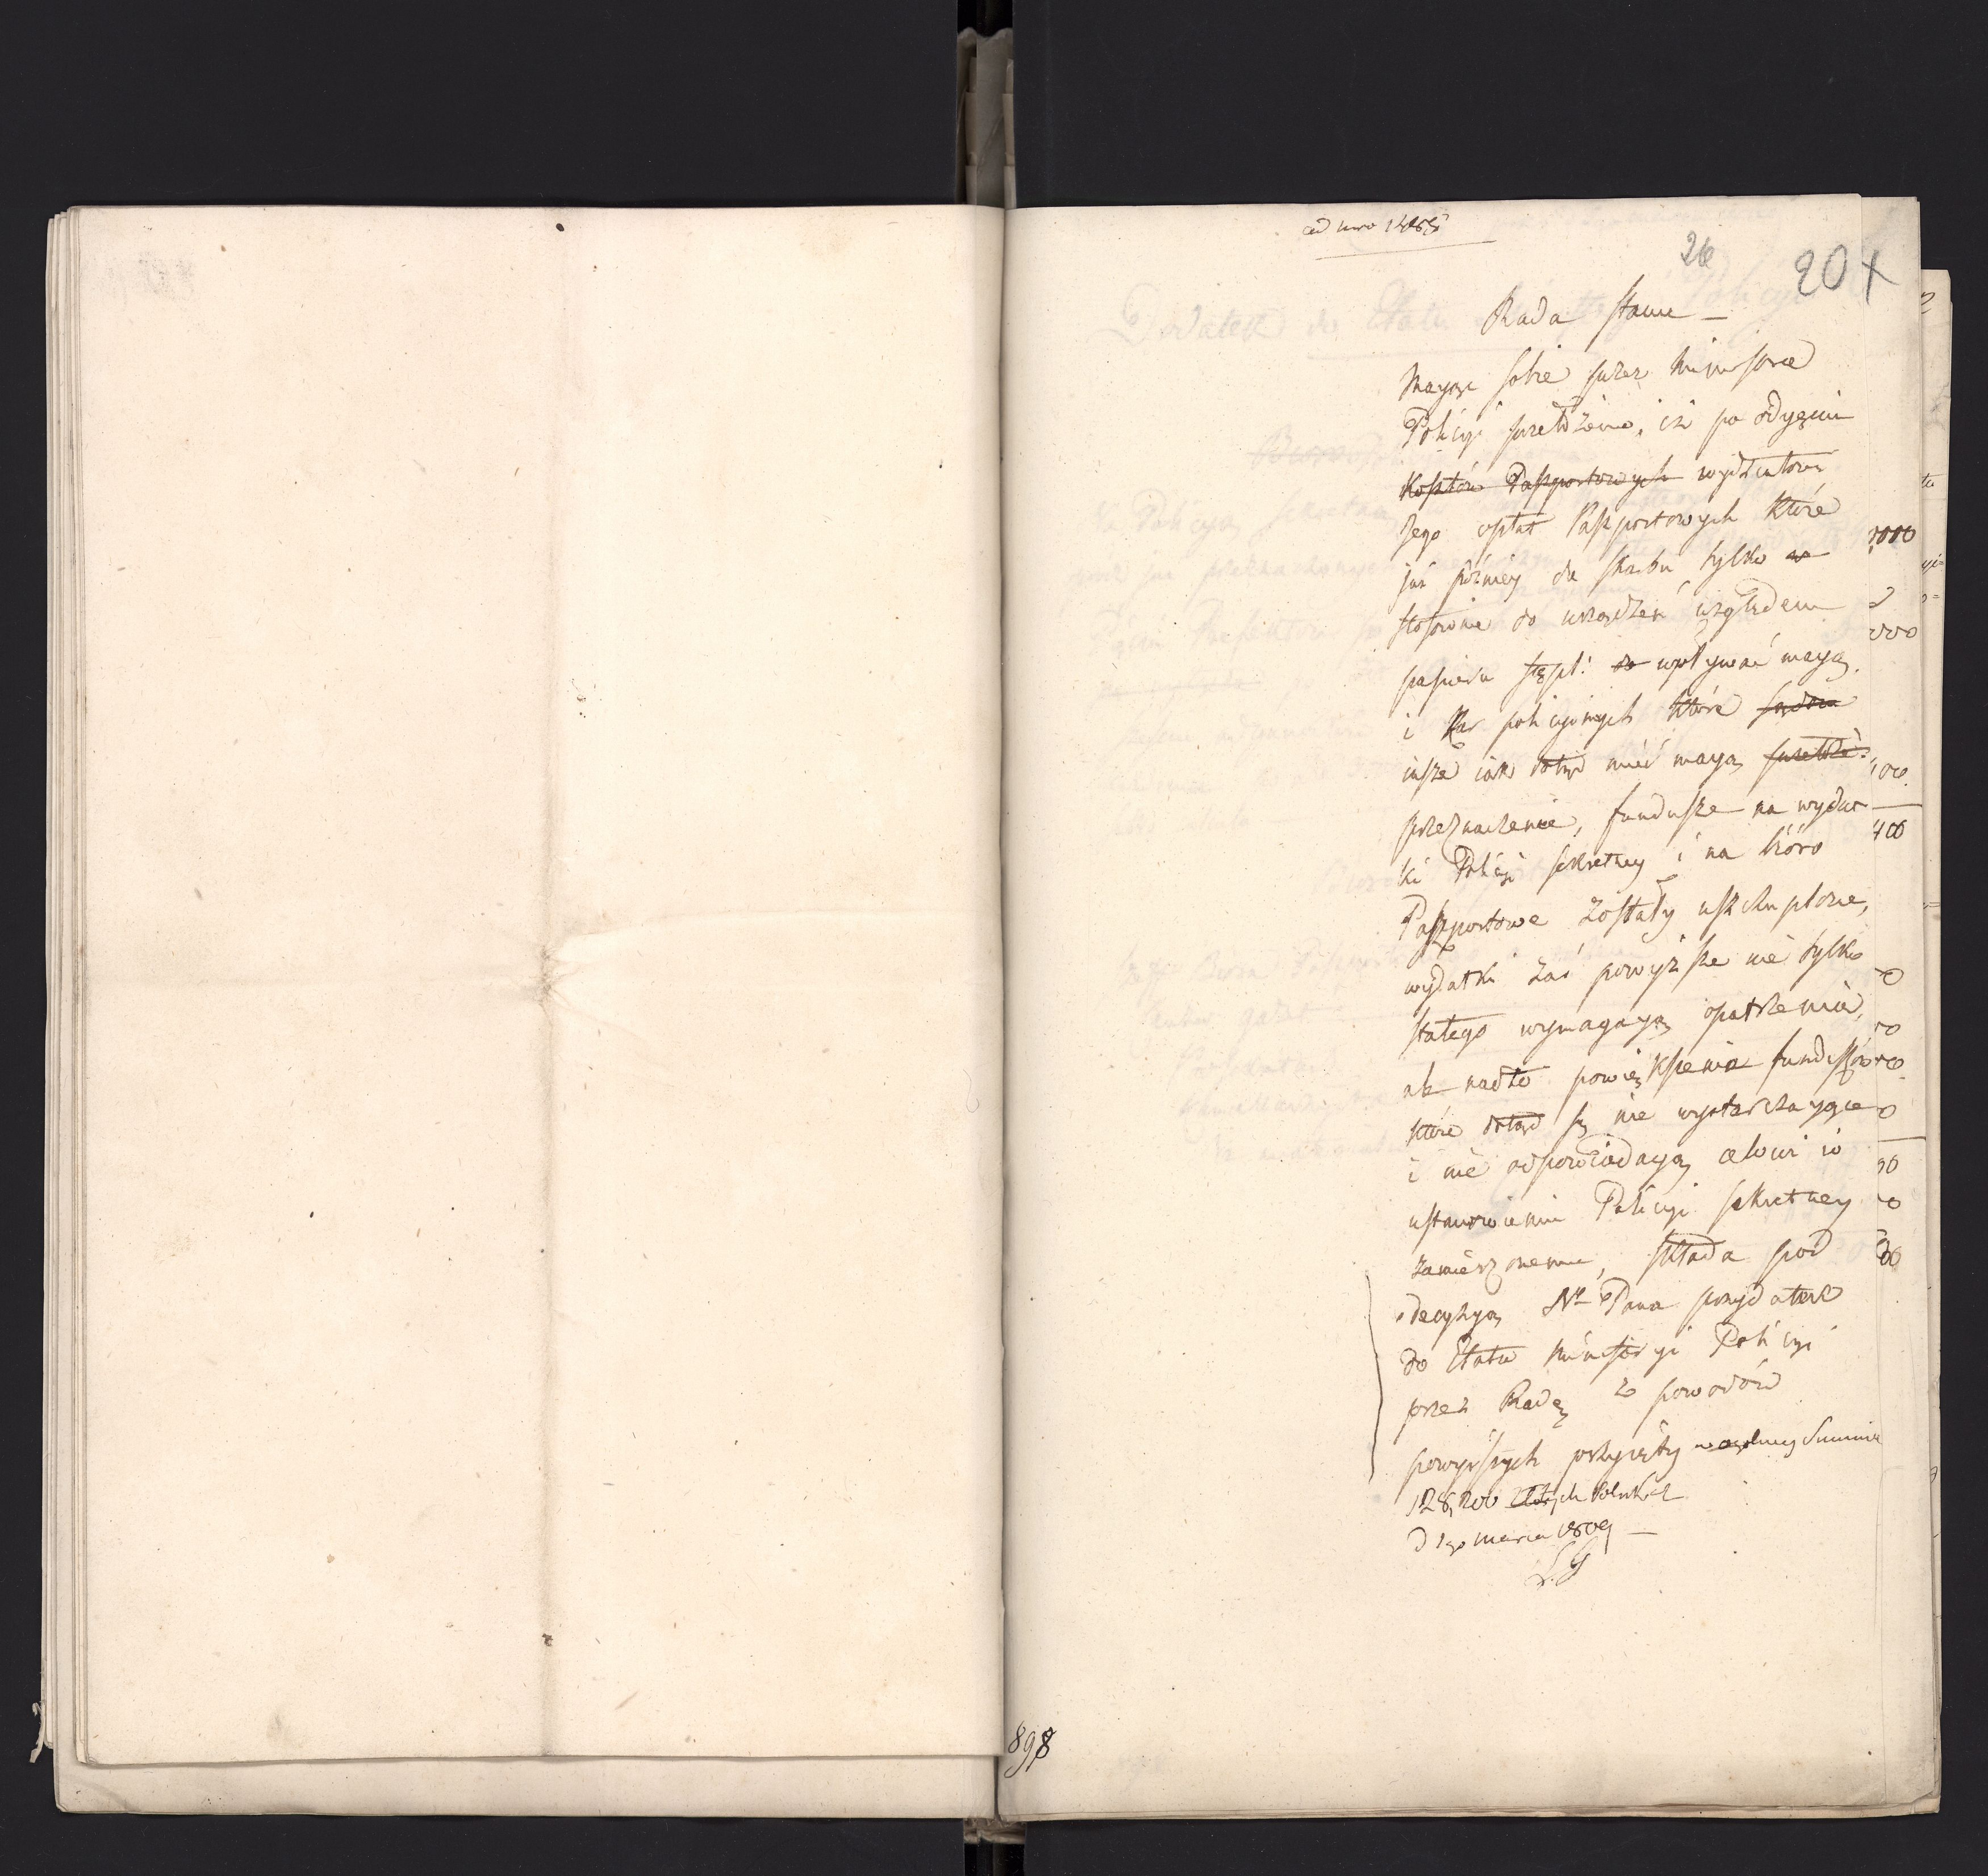 ad nro 1485
26
204
Rada Stanu —
Mayąc sobie przez Ministra
Policyi przełożone, iż po odyęciu
Kosztów Paszportowych wydziałowi
Jego opłat Paszportowych które
już późniéy do skarbu tylko w
stosownie do urządzeń względem
papieru stępl: do wpływać mayą,
i Kar policyinych które
insze iak dotąd mieć mayą
przeznaczenie, fundusze na wydat
ki Policyi sekretney i na bióro
Paszportowe zostały uszczuplone,
wydatki zaś powyższe nie tylko
stałego wymagayą opatrzenia,
ale nadto powiększenia funduszów
które dotąd są nie wystarczayące
i nie odpowiadayą celowi w
ustanowieniu Policyi sekretney
zamierzonemu, składa pod
decyzyą Nº Pana przydatek
do Etatu Ministeryi Policyi
przez Radę z powodów
powyższych przyięty w ogólney Summie
128,200 Złotych Polskich
d 1go marca 1809 —
S. G
898